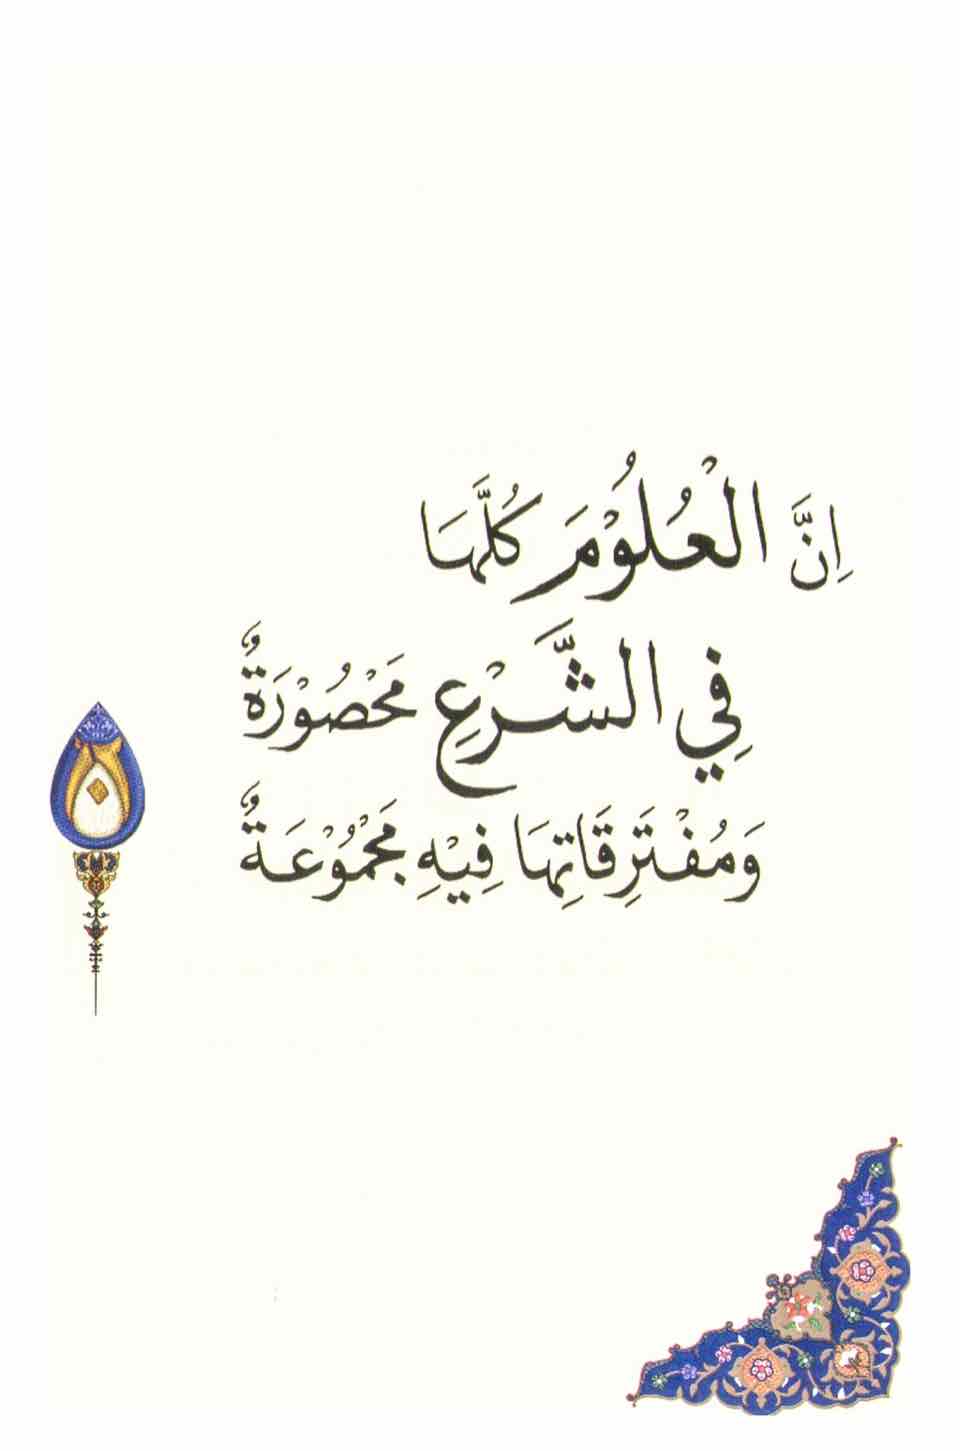 اِنَّ الْعُلُوْمَ كُلَّهَا
فِي الشَّرْعِ مَحْصُوْرَةٌ
وَمُفْتَرِقَاتِهَا فِيْهِ مَجْمُوْعَةٌ